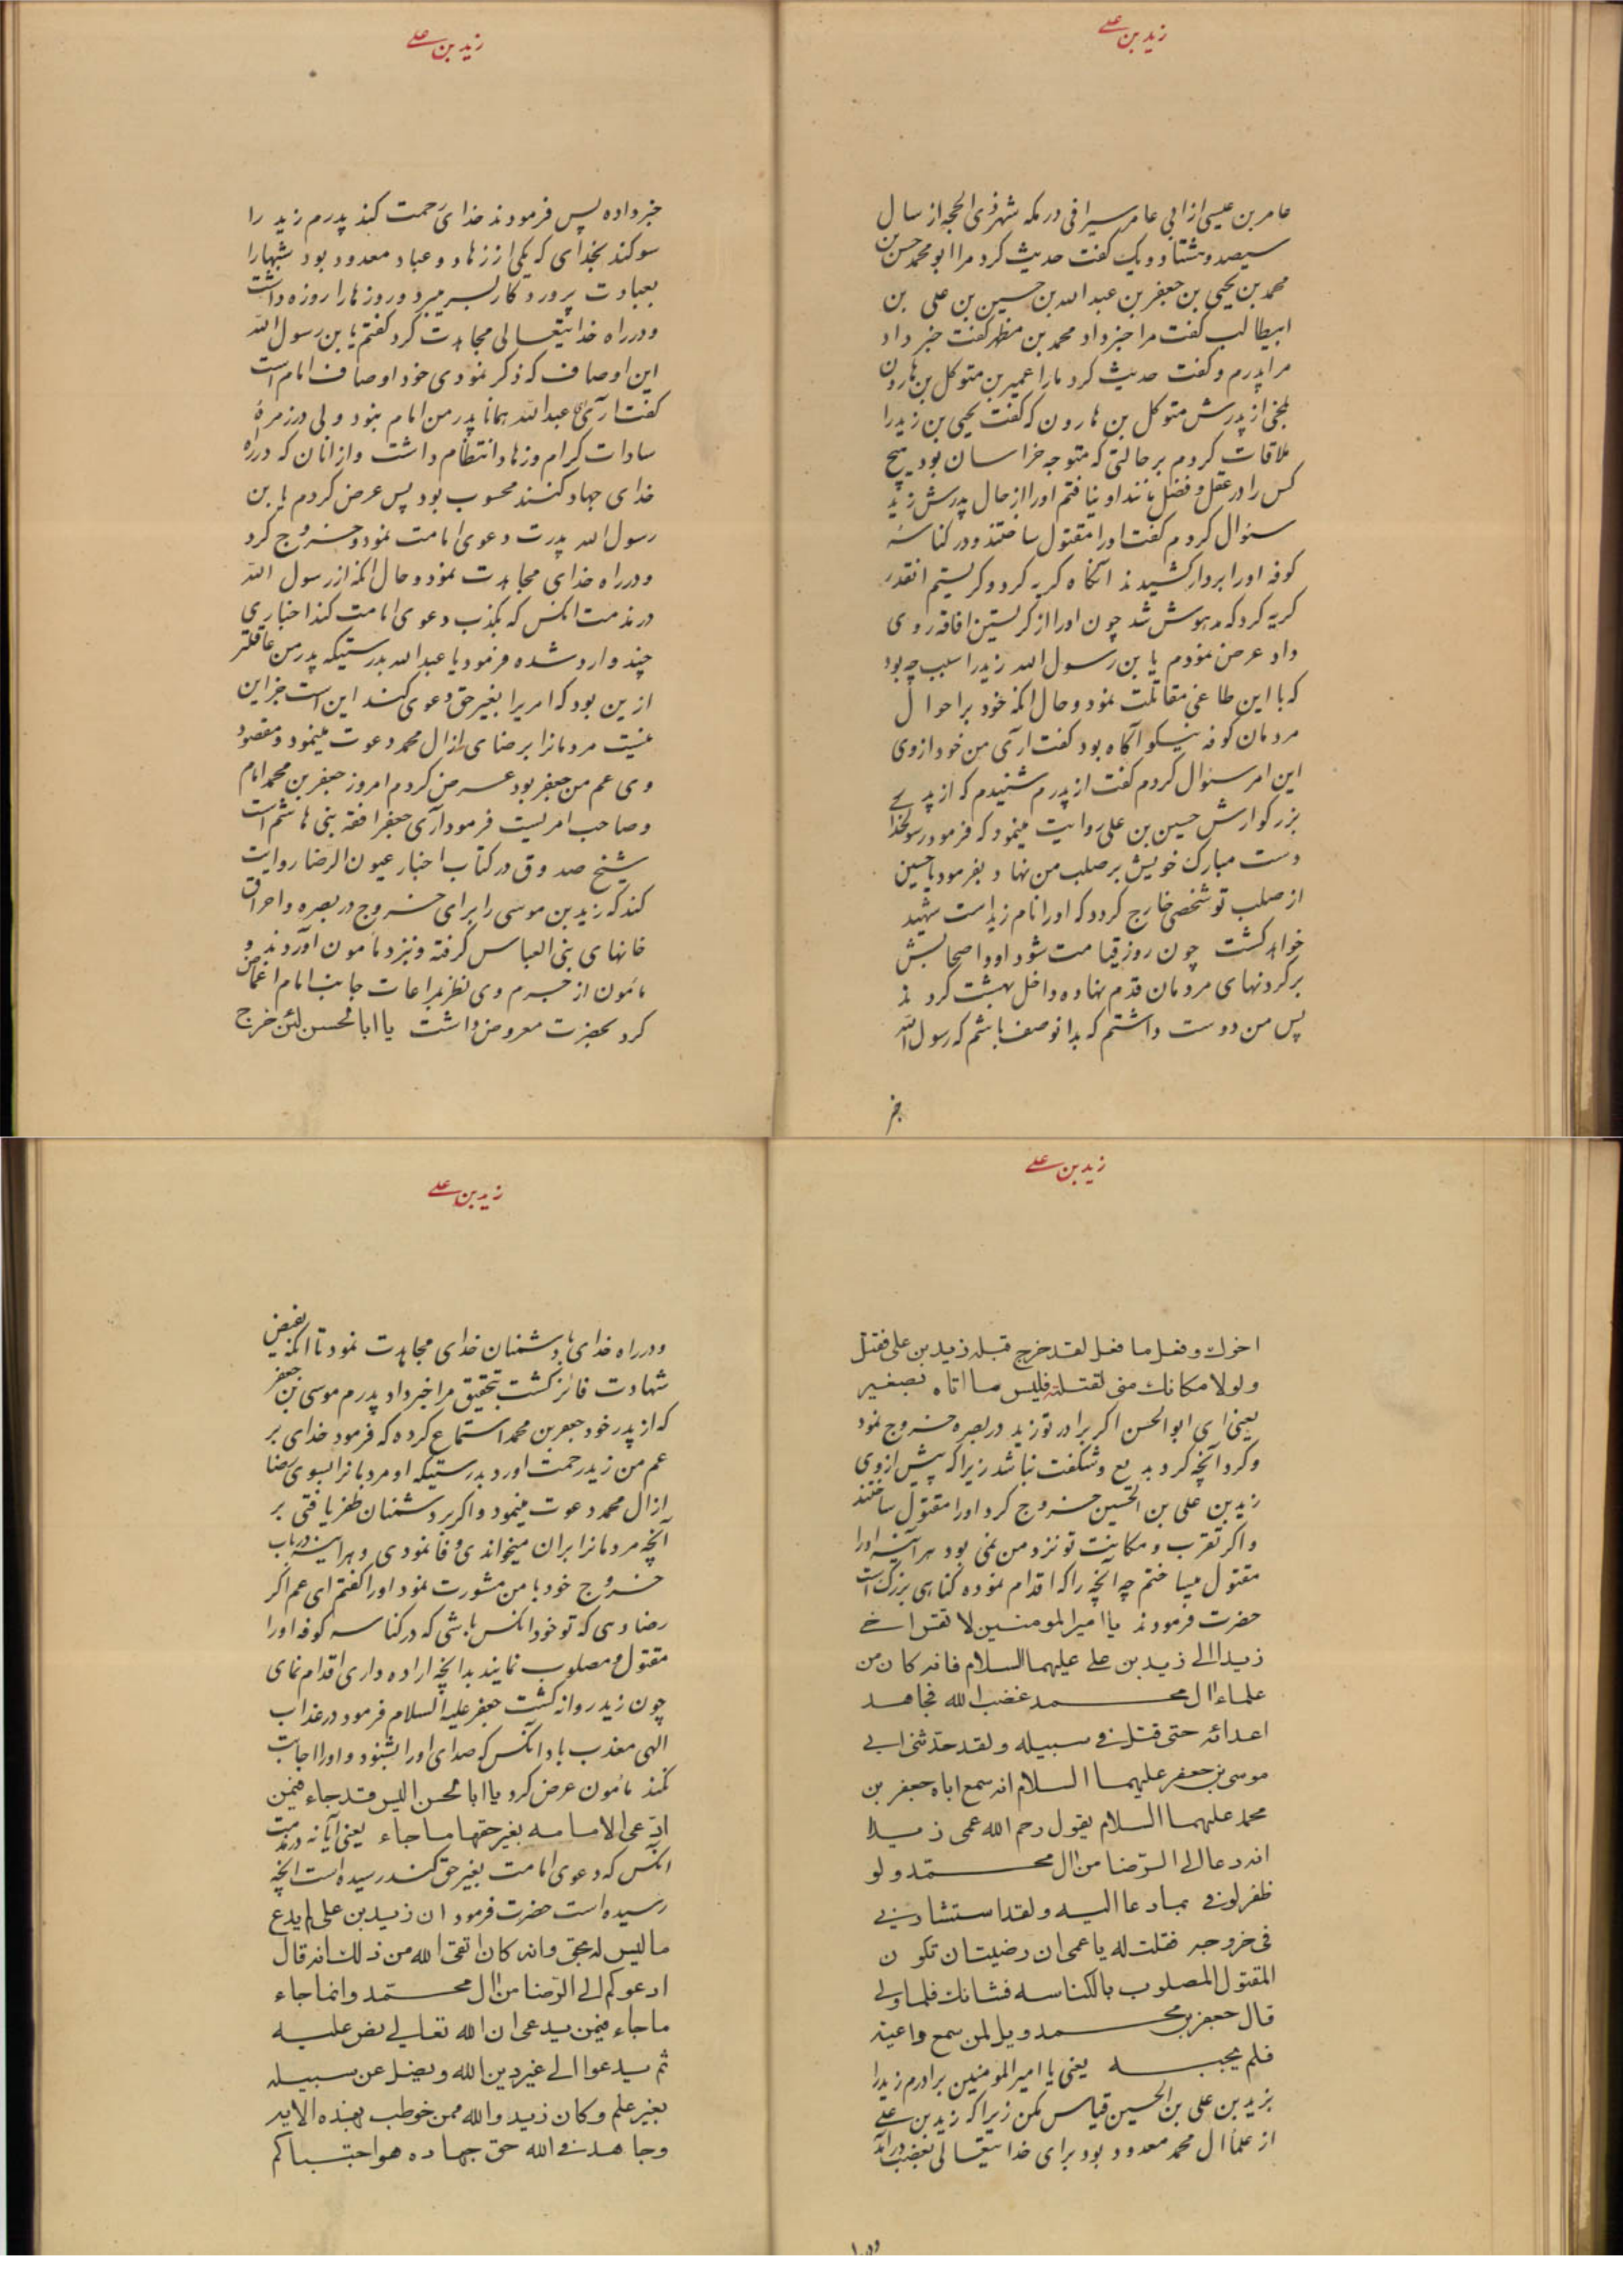 زید بن علی
عامر بن عیسی از ابی عامر سیرافی در مکه شهر ذی الحجه از سال
سیصد و هشتاد و یک گفت حدیث کرد مرا ابو محمد حسن بن
محمد بن یحیی بن جعفر بن عبد الله بن حسین بن علی بن
ابیطالب گفت مرا خبر داد محمد بن مطهر گفت خبر داد
مرا پدرم و گفت حدیث کرد ما را عمیر بن متوکل بن هارون
بلخی از پدرش متوکل بن هارون که گفت یحیی بن زید را
ملاقات کردم بر حالتی که متوجه خراسان بود هیچ
کس را در عقل و فضل مانند او نیافتم او را از حال پدرش زید
سئوال کردم گفت او را مقتول ساختند و در کناسهٔ
کوفه او را بر دار کشیدند آنگاه گریه کرد و گریستم انقدر
گریه کرد که مدهوش شد چون او را از گریستن افاقه روی
داد عرض نمودم یا بن رسول الله زید را سبب چه بود
که با این طاغی مقاتلت نمود و حال انکه خود بر احوال
مردمان کوفه نیکو آگاه بود گفت اری من خود از وی
این امر سئوال کردم گفت از پدرم شنیدم که از پدر
بزرگوارش حسین بن علی روایت مینمود که فرمود رسولخدا
دست مبارک خویش بر صلب من نهاد و بفرمود یا حسین
از صلب تو شخصی خارج گردد که او را نام زید است شهید
خواهد گشت چون روز قیامت شود او و اصحابش
بر گردنهای مردمان قدم نهاده داخل بهشت گردند
پس من دوست داشتم که بدانوصف باشم که رسول الله
خبر
زید بن علی
خبر داده پس فرمودند خدای رحمت کند پدرم زید را
سوگند بخدای که یکی از زهاد و عباد معدود بود شبها را
بعبادت پروردگار بسر میبرد و روزها را روزه داشت
و در راه خدایتعالی مجاهدت کرد گفتم یا بن رسول الله
این اوصاف که ذکر نمودی خود اوصاف امام است
گفت اری یا عبد الله همانا پدر من امام نبود ولی در زمرهٔ
سادات کرام و زهاد انتظام داشت و از انان که در راه
خدای جهاد کنند محسوب بود پس عرض کردم یا بن
رسول الله پدرت دعوی امامت نمود و خروج کرد
و در راه خدای مجاهدت نمود و حال انکه از رسول الله
در مذمت انکس که بکذب دعوی امامت کند اخباری
چند وارد شده فرمود یا عبد الله بدرستیکه پدر من عاقلتر
ازین بود که امریرا بغیر حق دعوی کند این است جز این
نیست مردمانرا بر ضای از ال محمد دعوت مینمود و مقصود
وی عم من جعفر بود عرض کردم امروز جعفر بن محمد امام
و صاحب امریست فرمود آری جعفر افقه بنی هاشم است
شیخ صدوق در کتاب اخبار عیون الرضا روایت
کند که زید بن موسی را برای خروج در بصره و احراق
خانهای بنی العباس گرفته و نزد مامون آوردند و
مأمون از جرم وی نظر بمراعات جانب امام اغماض
کرد بحضرت معروض داشت یا ابا الحسن لئن خرج
زید بن علی
اخوك و فعل ما فعل لقد خرج قبله زید بن علی فقتل
و لولا مکانك منی لقتلته فلیس ما اتاه بصغیر
یعنی ای ابو الحسن اگر برادر تو زید در بصره خروج نمود
و کرد آنچه کرد بدیع و شگفت نباشد زیرا که پیش از وی
زید بن علی بن الحسین خروج کرد او را مقتول ساختند
و اگر تقرب و مکانت تو نزد من نمی بود هر آینه او را
مقتول میساختم چه آنچه را که اقدام نموده گناهی بزرگ است
حضرت فرمودند یا امیر المومنین لا تقس اخی
زیدا الی زید بن علی علیهما السلام فانه کان من
علماء ال محمد غضب الله فجاهد
اعدائه حتی قتل فی سبیله و لقد حدثنی ابی
موسی بن جعفر علیهما السلام انه سمع اباه جعفر بن
محمد علیهما السلام یقول رحم الله عمی زیدا
انه دعا الی الرضا من ال محمد و لو
ظفر لوفی بما دعا الیه و لقد استشارنی
فی خروجه فقلت له یا عمی ان رضیت ان تکون
المقتول المصلوب بالکناسه فشانك فلما ولی
قال جعفر بن محمد ویل لمن سمع واعیته
فلم یجبه یعنی یا امیر المومنین برادرم زید را
بزید بن علی بن الحسین قیاس مکن زیرا که زید بن علی
از علماء ال محمد معدود بود برای خدایتعالی بغضب در آمد
زید بن علی
و در راه خدای با دشمنان خدای مجاهدت نمود تا انکه بفیض
شهادت فائز گشت بتحقیق مرا خبر داد پدرم موسی بن جعفر
که از پدر خود جعفر بن محمد استماع کرده که فرمود خدای بر
عم من زید رحمت اورد بدرستیکه او مردمانرا بسوی رضا
از ال محمد دعوت مینمود و اگر بر دشمنان ظفر یافتی بر
آنچه مردمانرا بران میخواندی وفا نمودی و هر اینه در باب
خروج خود با من مشورت نمود او را گفتم ای عم اگر
رضا دهی که تو خود انکس باشی که در کناسه کوفه او را
مقتول و مصلوب نمایند بدانچه اراده داری اقدام نمای
چون زید روانه گشت جعفر علیه السلام فرمود در عذاب
الهی معذب باد آنکس که صدای او را بشنود و او را اجابت
نکند مأمون عرض کرد یا ابا الحسن الیس قد جاء فیمن
ادعی الامامه بغیر حقها ما جاء یعنی آیا نه در مذمت
انکس که دعوی امامت بغیر حق کند رسیده است انچه
رسیده است حضرت فرمود ان زید بن علی لم یدع
ما لیس له بحق و انه کان اتقی الله من ذلك انه قال
ادعوکم الی الرضا من ال محمد و انما جاء
ما جاء فیمن یدعی ان الله تعالی نص علیه
ثم یدعوا الی غیر دین الله و یضل عن سبیله
بغیر علم و کان زید والله ممن خوطب بهذه الایه
و جاهدوا فی الله حق جهاده هو اجتباکم